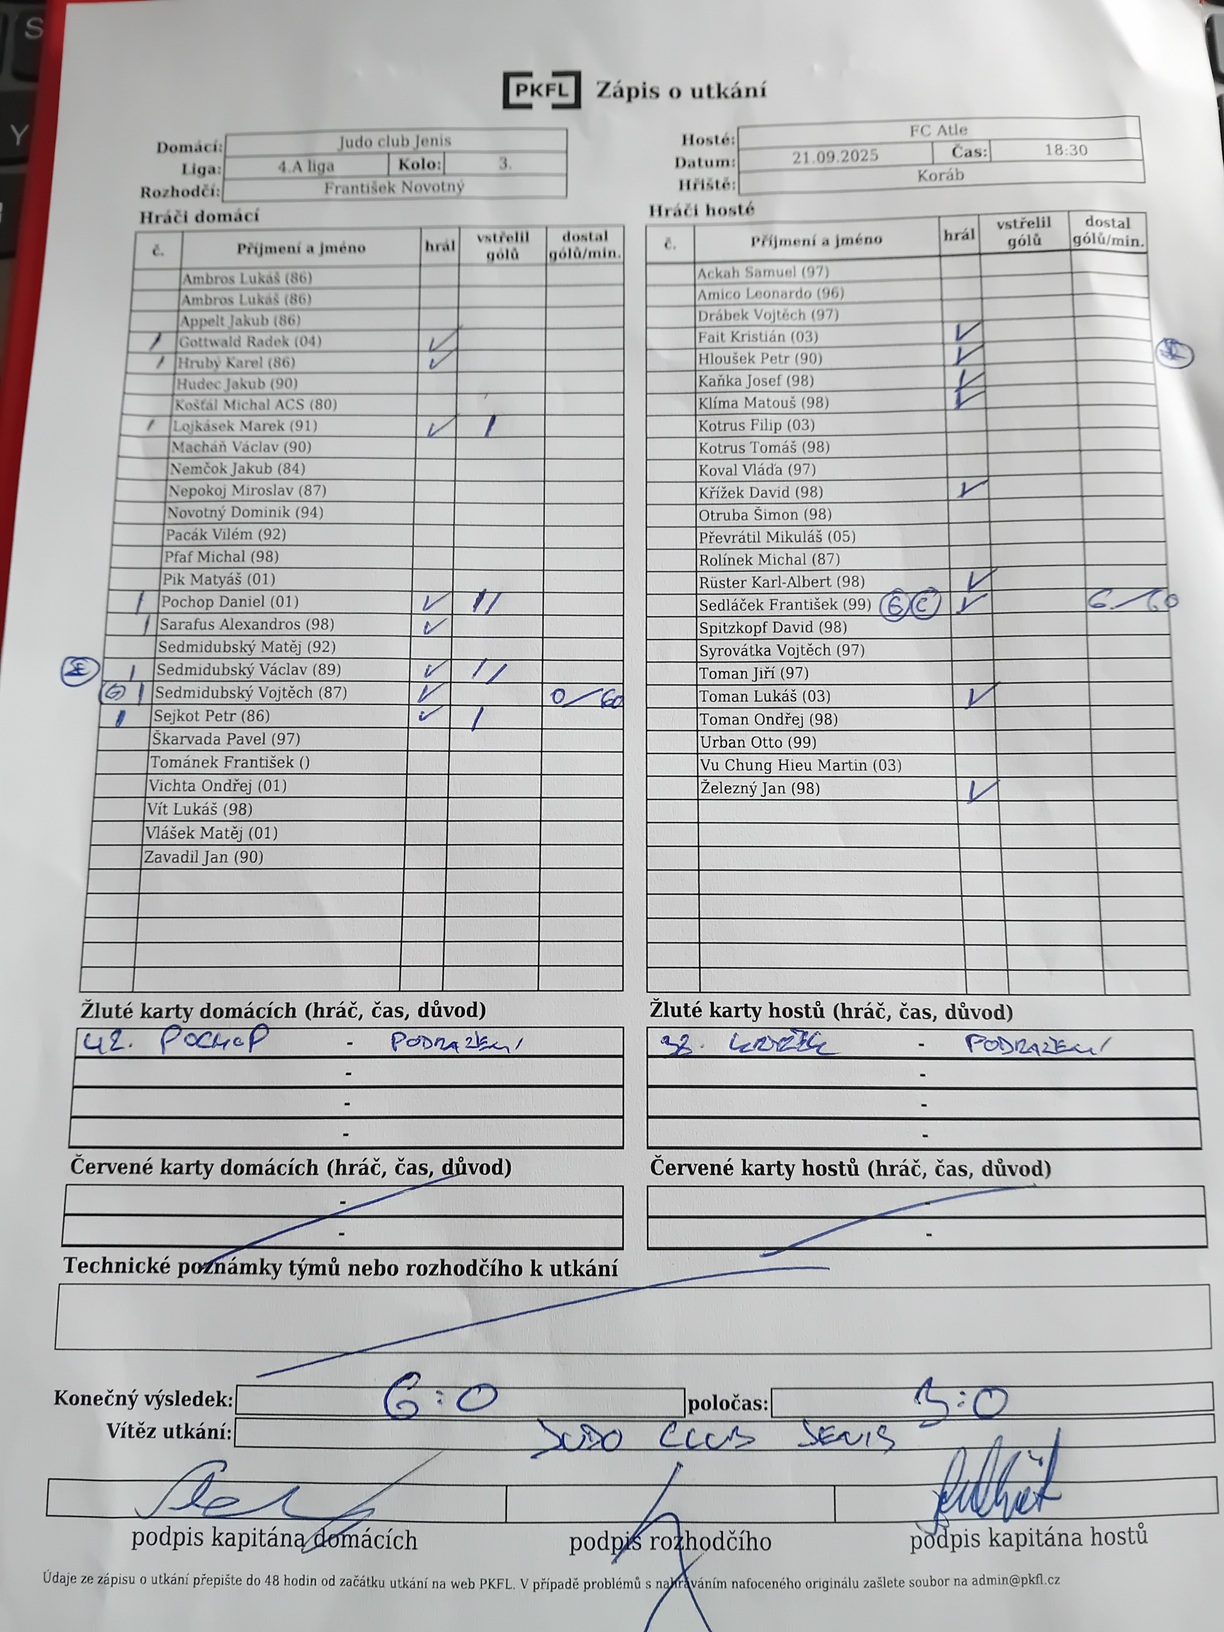 PKFL Zápis o utkání
Domácí: Judo club Jenis
Liga: 4.A liga Kolo: 3.
Rozhodčí: František Novotný
Hosté: FC Atle
Datum: 21.09.2025 Čas: 18:30
Hřiště: Koráb
Hráči domácí
č. Příjmení a jméno hrál vstřelil gólů dostal gólů/min.
Ambros Lukáš (86)
Ambros Lukáš (86)
Appelt Jakub (86)
/ Gottwald Radek (04) ✓
/ Hrubý Karel (86) ✓
Hudec Jakub (90)
Košťál Michal ACS (80)
/ Lojkásek Marek (91) ✓ /
Macháň Václav (90)
Nemčok Jakub (84)
Nepokoj Miroslav (87)
Novotný Dominik (94)
Pacák Vilém (92)
Pfaf Michal (98)
Pik Matyáš (01)
/ Pochop Daniel (01) ✓ //
/ Sarafus Alexandros (98) ✓
Sedmidubský Matěj (92)
/ Sedmidubský Václav (89) ✓ //
G / Sedmidubský Vojtěch (87) ✓ 0/60
/ Sejkot Petr (86) ✓ /
Škarvada Pavel (97)
Tománek František ()
Vichta Ondřej (01)
Vít Lukáš (98)
Vlášek Matěj (01)
Zavadil Jan (90)
Hráči hosté
č. Příjmení a jméno hrál vstřelil gólů dostal gólů/min.
Ackah Samuel (97)
Amico Leonardo (96)
Drábek Vojtěch (97)
Fait Kristián (03) ✓
Hloušek Petr (90) ✓
Kaňka Josef (98) ✓
Klíma Matouš (98) ✓
Kotrus Filip (03)
Kotrus Tomáš (98)
Koval Vláďa (97)
Křížek David (98) ✓
Otruba Šimon (98)
Převrátil Mikuláš (05)
Rolínek Michal (87)
Rüster Karl-Albert (98) ✓
Sedláček František (99) G C ✓ 6/60
Spitzkopf David (98)
Syrovátka Vojtěch (97)
Toman Jiří (97)
Toman Lukáš (03) ✓
Toman Ondřej (98)
Urban Otto (99)
Vu Chung Hieu Martin (03)
Železný Jan (98) ✓
Žluté karty domácích (hráč, čas, důvod)
42. POCHOP - PODRAŽENÍ
-
-
-
Žluté karty hostů (hráč, čas, důvod)
38. KŘÍŽEK - PODRAŽENÍ
-
-
-
Červené karty domácích (hráč, čas, důvod)
-
-
Červené karty hostů (hráč, čas, důvod)
-
-
Technické poznámky týmů nebo rozhodčího k utkání
Konečný výsledek: 6:0 poločas: 3:0
Vítěz utkání: JUDO CLUB JENIS
podpis kapitána domácích podpis rozhodčího podpis kapitána hostů
Údaje ze zápisu o utkání přepište do 48 hodin od začátku utkání na web PKFL. V případě problémů s nahráváním nafoceného originálu zašlete soubor na admin@pkfl.cz